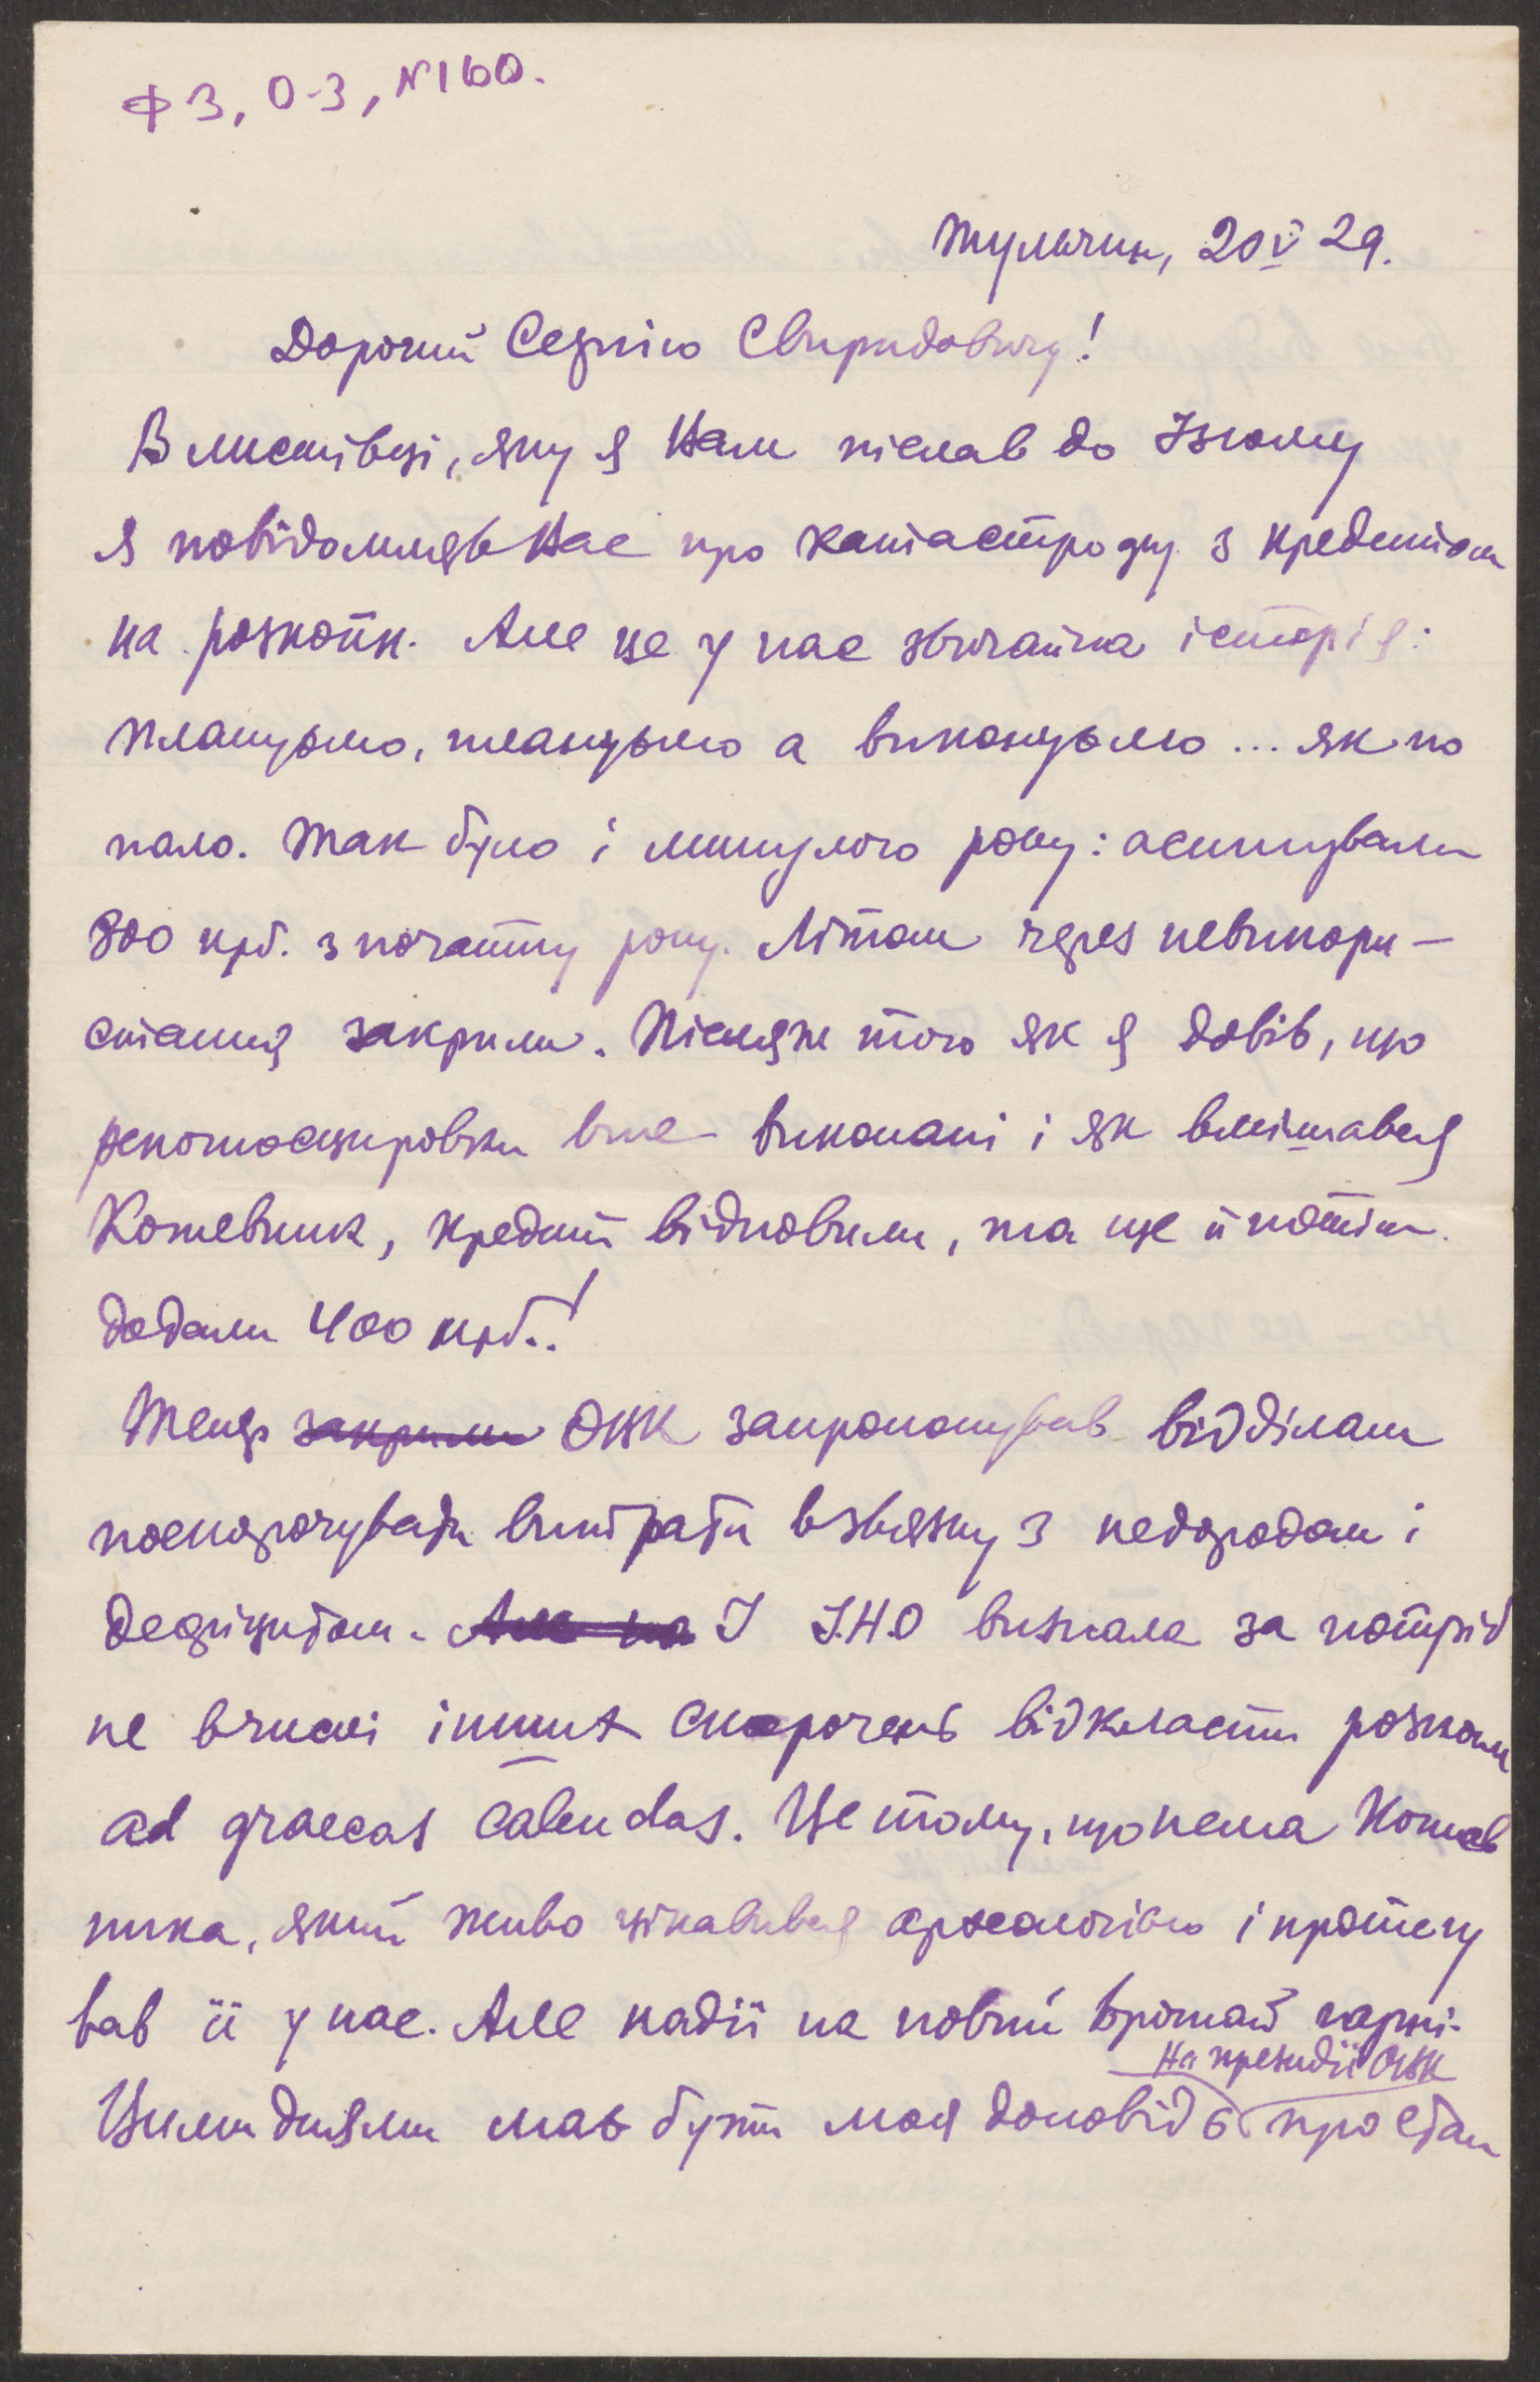 Ф 3, О-3, №160.
Тульчин, 20 V 29.
Дорогий Сергію Свиридовичу!
В листівці, яку я Вам післав до Ізюму
я повідомляв Вас про катастрофу з кредитом
на розкопи. Але це у нас звичайна історія:
плануємо, плануємо а виконуємо... як по
пало. Так було і минулого року: асигнували
800 крб. з початку року. Літом через невикори-
стання закрили. Після ж того як я довів, що
рекогносцировки вже виконані і як вмішався
Кожевник, кредит відновили, та ще й потім
додали 400 крб.!
Тепер закрили ОВК запропонував відділам
поскорочувати витрати взвязку з недородом і
дефіцитом. Але на І І.Н.О визнала за потріб
не вчислі інших скорочень відкласти розкопи
ad graecas calendas. Це тому, що нема Кожев
ника, який живо цікавився археологією і протегу
вав її у нас. Але надії на новий врожай гарні.
На президії ОВК
Цими днями має бути моя доповідь про стан